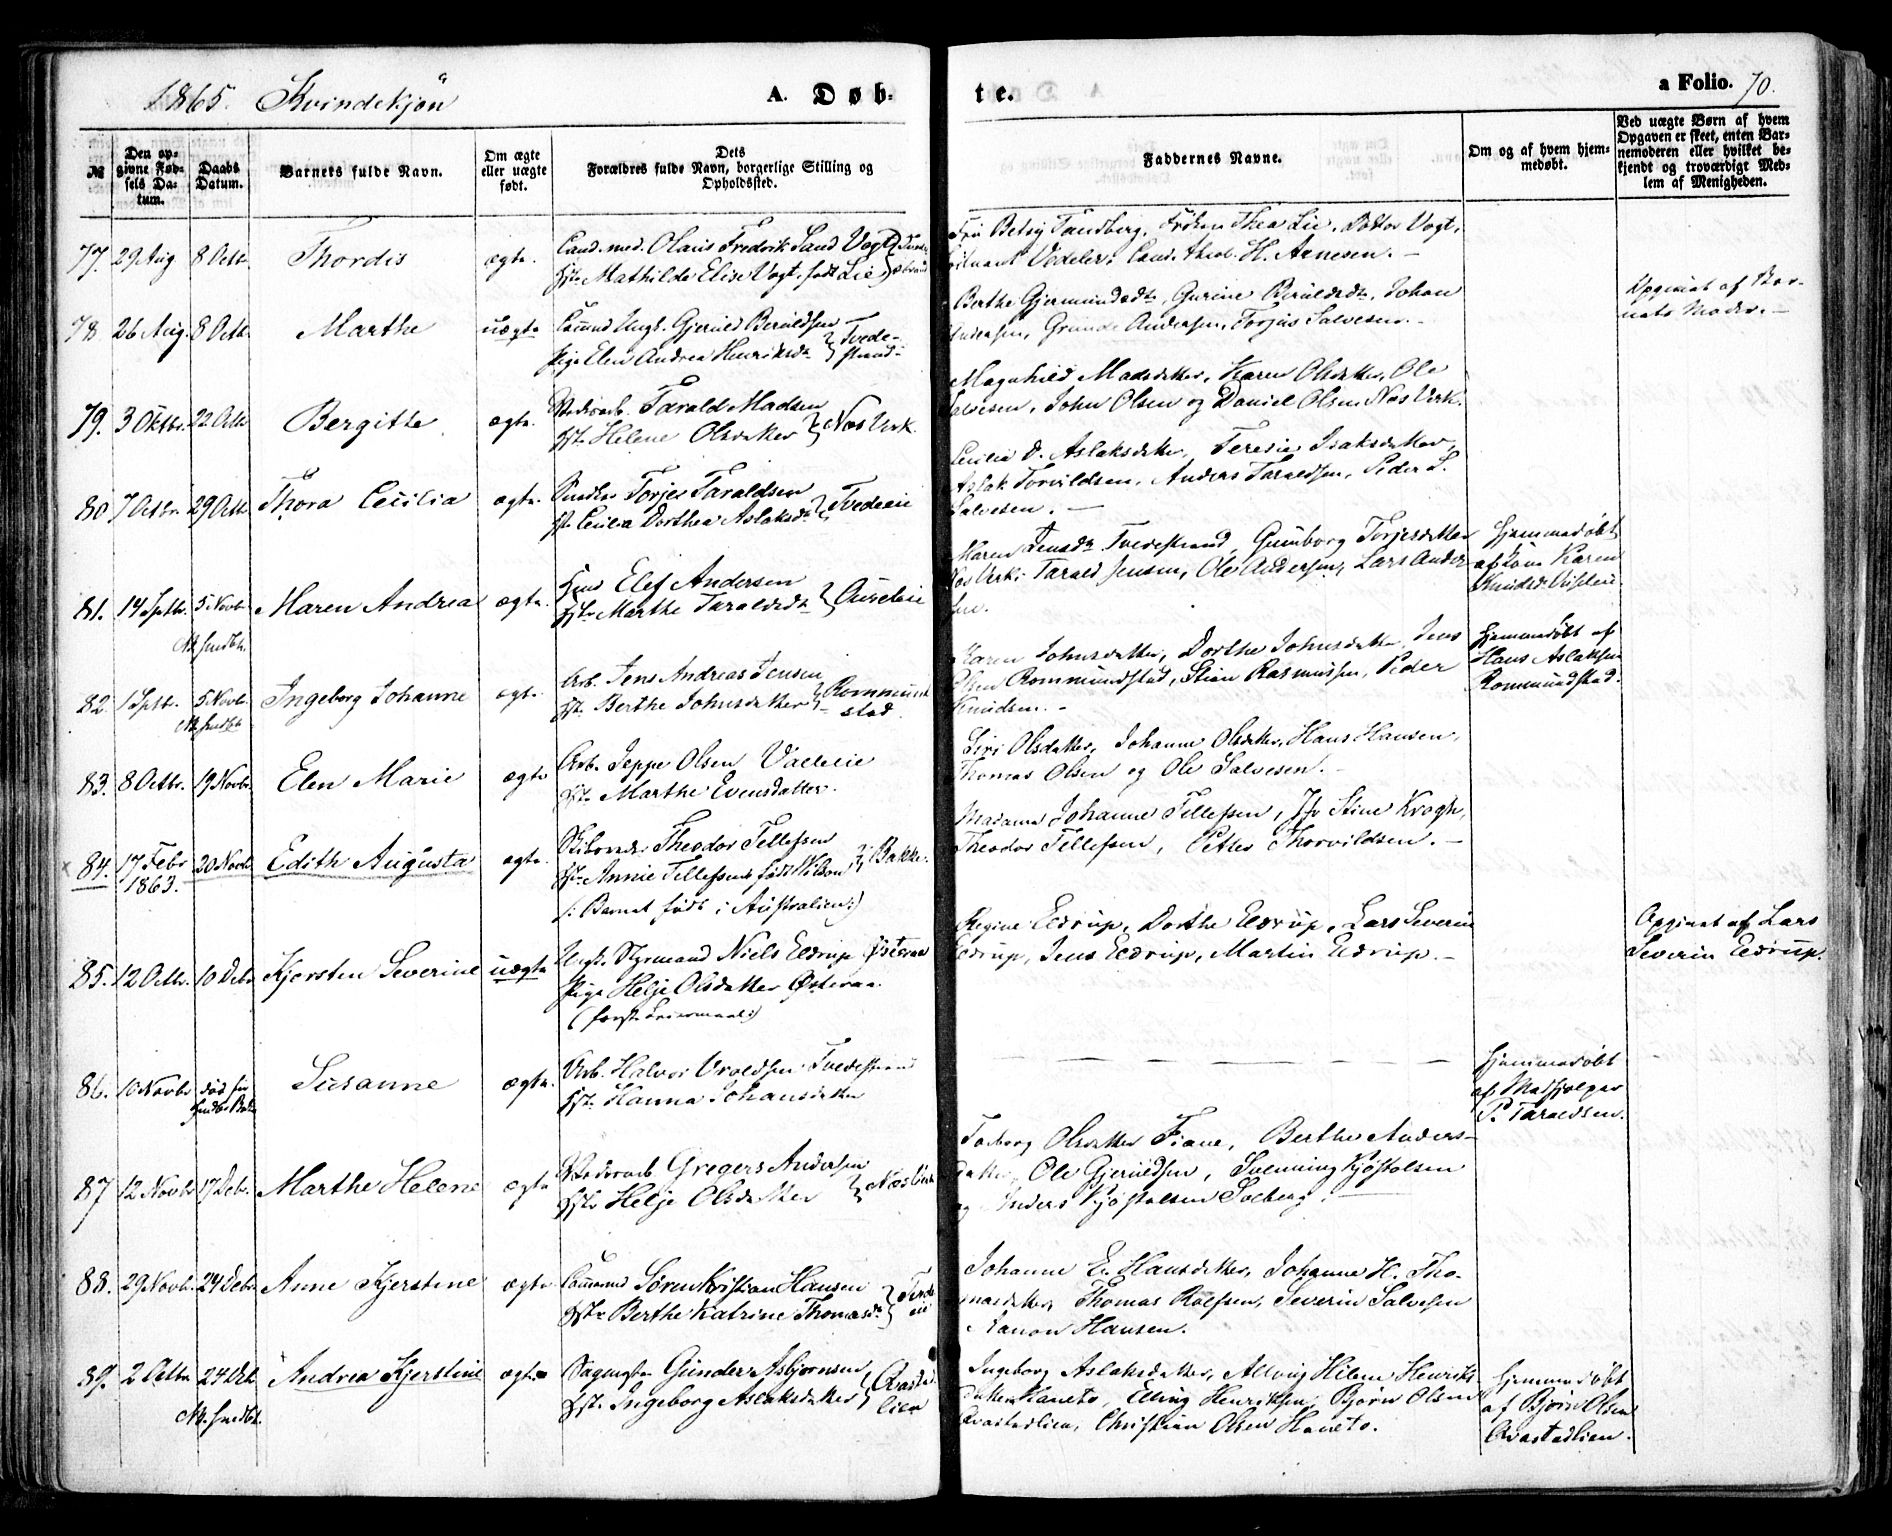 1865. Kvindekjön
A. Døb-
te.
a Folio. 70.
№
Den op-
givne Fød-
sels Da-
tum.
Daabs
Datum.
Barnets fulde Navn.
Om ægte
eller uægte
født.
Dets
Forældres fulde Navn, borgerlige Stilling og
Opholdssted.
Faddernes Navne.
Om og af hvem hjem-
medøbt.
Ved uægte Børn af hvem
Opgaven er skeet, enten Bar-
nemoderen eller hvilket be-
kjendt og troværdigt Med-
lem af Menigheden.
77. 29 Aug 8 Octb. Thordis ægte.
Cand. med. Olaus Fredrik Sand Vogt
Hst. Mathilde Elise Vogt, født Lie
Betsy Sandberg, Frøken Thea Lie, Doktor Vogt,
Vedeler, Cand. theol. H. Arnesen. —
78. 26 Aug. 8 Octb. Marthe uægte
Ungk. Gjeruld Beruldsen
Pige Elen Andrea Henriksd. } Tvede-
strand
Berthe Gjermundsdtr, Gurine Beruldsdtr, Johan
Andersen, Grunde Andersen, Torjus Salvesen. —
Opgivet af Bar-
nets Moder. —
79. 3 Oktbr. 22 Octb. Bergithe ægte.
Tarald Madsen
Hst. Helene Olsdatter } Næs Verk.
Magnhild Madsdatter, Karen Olsdatter, Ole
Salvesen, John Olsen og Daniel Olsen Næs Verk.
80 7 Octbr. 29 Octb. Thora Cecilia ægte.
Torjes Taraldsen
Hst. Cecilia Dorthea Aslaksd. } Tvedeeie
Cecilia D. Aslaksdatter, Teresie Isaksdatter,
Aslak Torvildsen, Anders Taraldsen, Peder S.
Salvesen. —
81. 14 Sptbr. 5 Novb. Maren Andrea ægte.
Nb. hmdbt.
Elef Andersen
Hst. Marthe Taraldsd.
Maren Jensd. Tvedestrand, Gunborg Torjesdatter
Næs Verk, Tarald Jensen, Ole Andersen, Lars Ander
sen.
Hjemmedøbt
af Karen
Knudsd.
82. 1 Sptb. 5 Novb. Ingeborg Johanne ægte.
Nb. hmdbt
Arb. Jens Andreas Jensen
Hst. Berthe Johnsdatter } Rommund
stad
Karen Johnsdatter, Dorthe Johnsdatter, Jens
Olsen Rommundstad, Stian Rasmussen, Peder
Knudsen. —
Hjemmedøbt af
Hans Aslaksen
Rommundstad.
83. 8 Octbr. 19 Novbr. Elen Marie ægte
Arb. Jeppe Olsen
Hst. Marthe Evensdatter.
Siri Olsdatter, Johanne Olsdatter, Hans Hansen,
Thomas Olsen og Ole Salvesen. —
84. 17 Febr 20 Novb. Edith Augusta ægte.
1863.
Theodor Tellefsen
Hst. Annie Tellefsen født Wilson } Bakke.
/: Barnet født i Australien :/
Madame Johanne Tellefsen, Jfr Stine Krogh,
Theodor Tellefsen, Petter Thorvildsen. —
85. 12 Octbr. 10 Debr Kjersten Severine uægte
Ungk. Styrmand Niels Eedrup Østeraa
Pige Helje Olsdatter Østeraa.
Regine Eedrup, Dorthe Eedrup, Lars Severin
Eedrup, Jens Eedrup, Martin Eedrup. —
Opgivet af Lars
Severin Eedrup.
86. 10 Novbr død før Susanne ægte.
Arb. Halvor Tvedestrand
Hst. Hanna Johansdatter
— — — — — — —
Hjemmedøbt
af Medhjelper
P. Taraldsen.
87 12 Novbr 17 Debr. Marthe Helene ægte
Gregers Andersen
Hst. Helje Olsdatter
Olsdatter Fiane, Berthe Anders-
datter, Ole Gjeruldsen, Svenning Kjøstolsen
og Anders Kjøstolsen Solberg.
88. 29 Novbr. 24 Debr Anne Kjerstine ægte
Søren Kristian Hansen
Hst. Berthe Katrine Thomasd.
Johanne E. Hansdatter, Johanne H. Tho-
masdatter, Thomas Rolfsen, Severin Salvesen
Aanon Hansen.
89. 2 Octbr 24 Andrea Kjerstine ægte
Nb. hmdbt.
Gunder Asbjørnsen
Hst. Ingeborg Aslaksdatter
Ingeborg Aslaksdatter, Hilene Henriks
datter Haneto, Elling Henriksen, Bjørn Olsen
Avastadlien, Christian Olsen Haneto.
Hjemmedøbt
af Bjørn Olsen
Avastadlien.